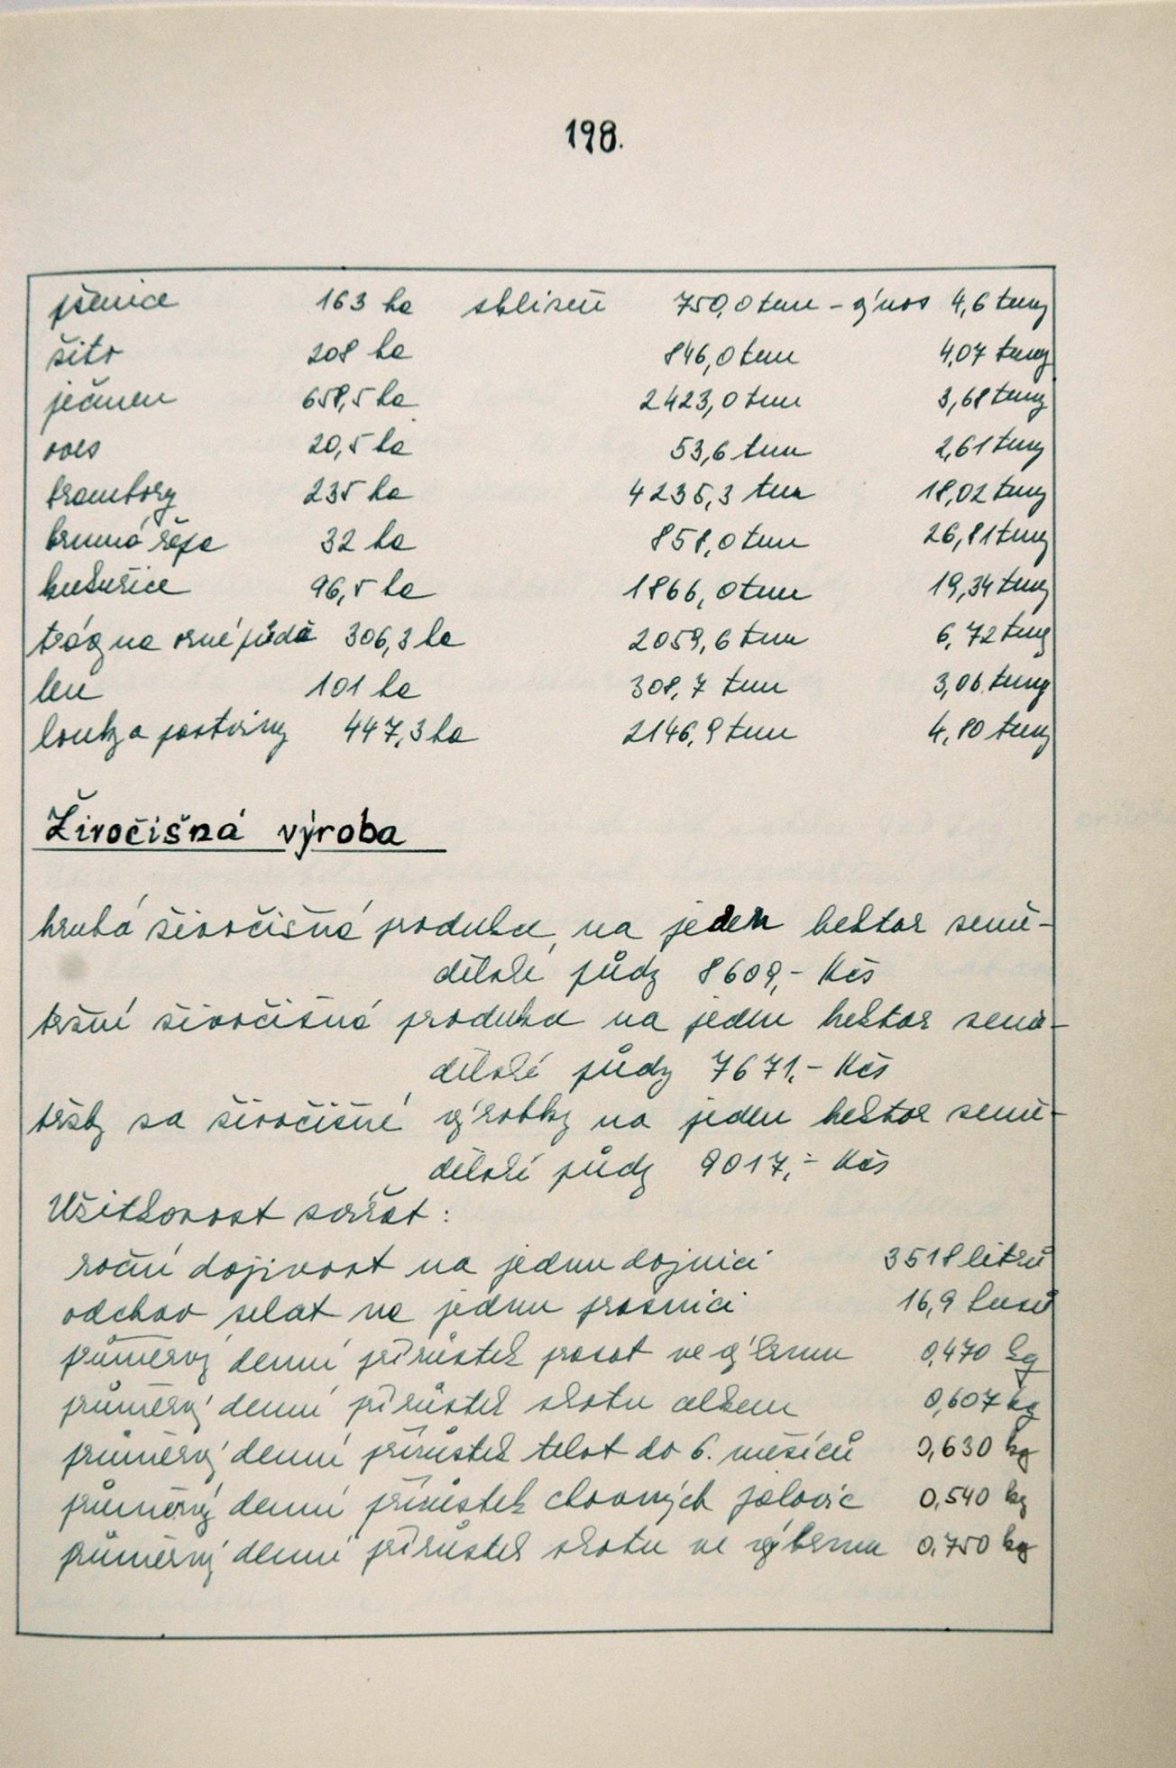 198.
pšenice 163 ha sklizeň 750,0 tun - výnos 4,6 tuny
žito 208 ha 846,0 tun 4,07 tuny
ječmen 658,5 ha 2423,0 tun 3,68 tuny
oves 20,5 ha 53,6 tun 2,61 tuny
brambory 235 ha 4235,3 tun 18,02 tuny
krmná řepa 32 ha 858,0 tun 26,81 tuny
kukuřice 96,5 ha 1866,0 tun 19,34 tuny
trávy na orné půdě 306,3 ha 2059,6 tun 6,72 tuny
len 101 ha 308,7 tun 3,06 tuny
louky a pastviny 447,3 ha 2146,9 tun 4,80 tuny
Živočišná výroba
hrubá živočišná produkce, na jeden hektar země-
dělské půdy 8609,- Kčs
tržní živočišná produkce na jeden hektar země-
dělské půdy 7671,- Kčs
tržby za živočišné výrobky na jeden hektar země-
dělské půdy 9017,- Kčs
Užitkovost zvířat:
roční dojivost na jednu dojnici 3518 litrů
odchov selat na jednu prasnici 16,9 kusů
průměrný denní přírůstek prasat ve výkrmu 0,470 kg
průměrný denní přírůstek skotu celkem 0,607 kg
průměrný denní přírůstek telat do 6. měsíců 0,630 kg
průměrný denní přírůstek chovných jalovic 0,540 kg
průměrný denní přírůstek skotu ve výkrmu 0,750 kg